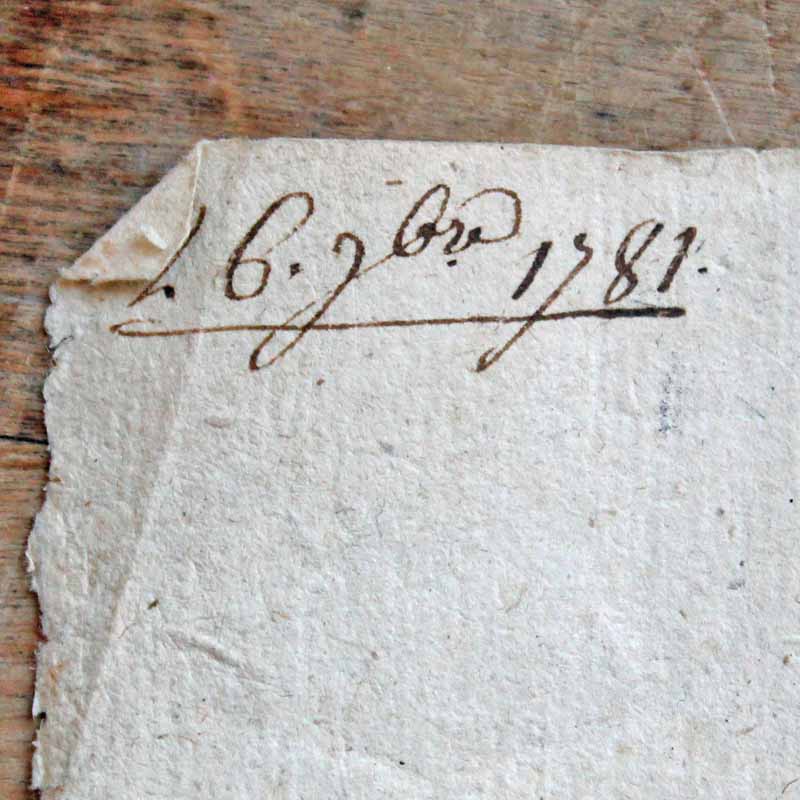 6. 7bre 1781.